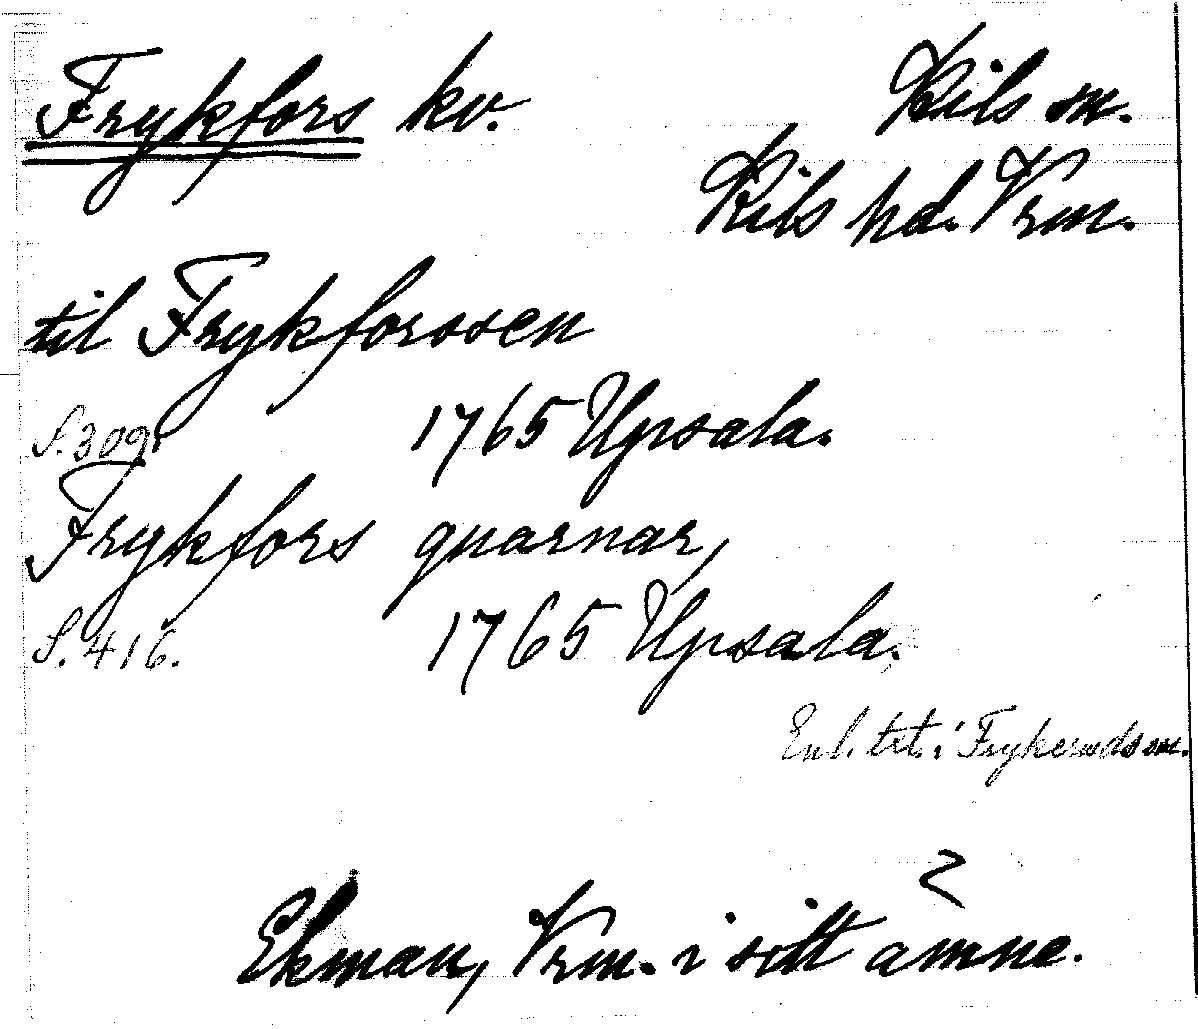 Frykfors kv. Kils sn.
Kils hd. Vrm.
til Frykforssen
S. 309. 1765 Upsala.
Frykfors quarnar,
S. 416. 1765 Upsala.
Enl. txt. i Frykeruds sn.
Ekman, Vrm. i sitt ämne.